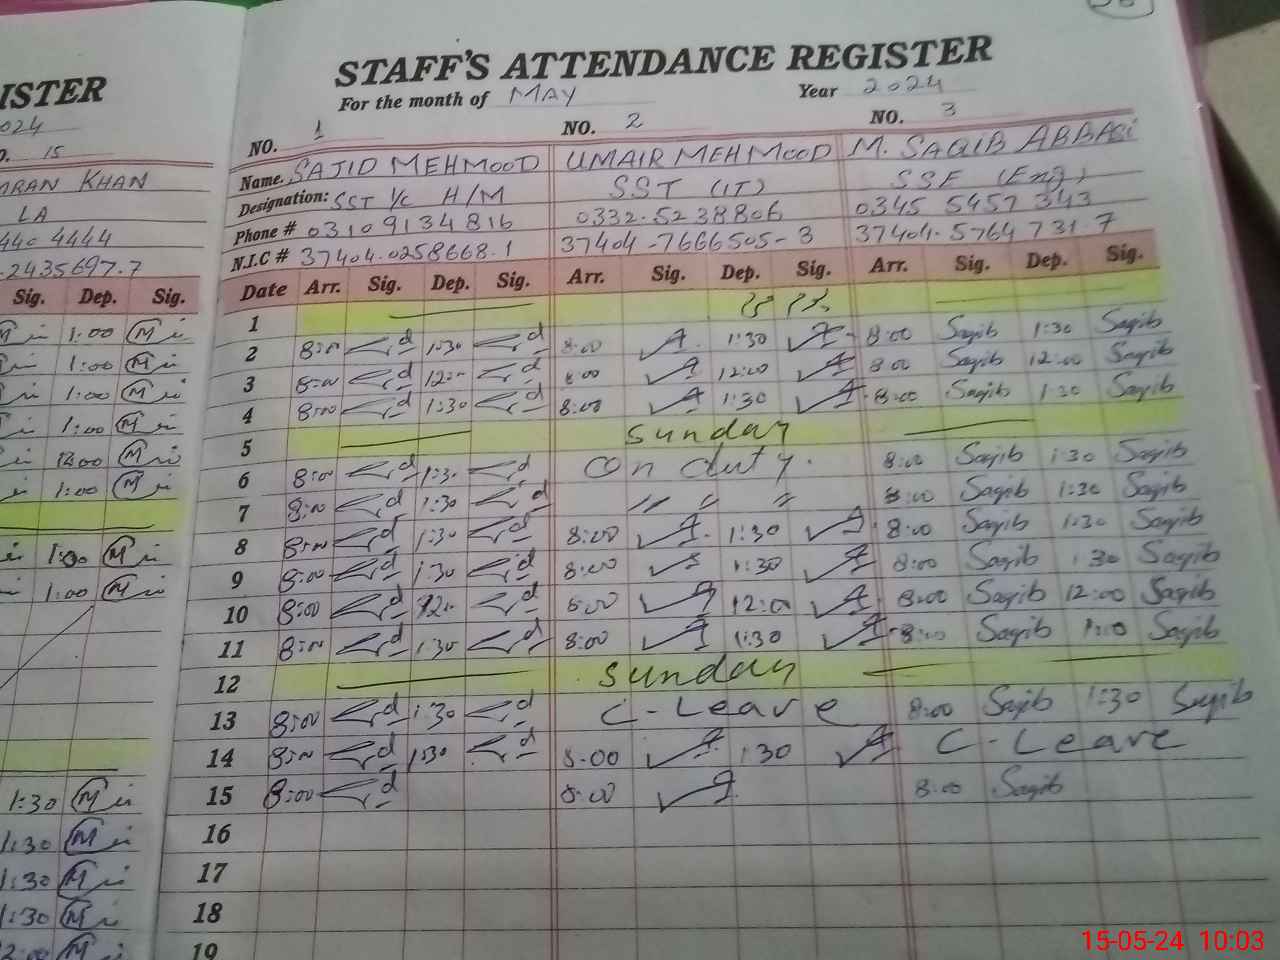 ISTER
024
15
RAN KHAN
LA
440 4444
2435697.7
Sig. Dep. Sig.
1:00
1:00
1:00
1:00
12:00
1:00
1:00
1:00
1:30
1:30
1:30
1:30
STAFF'S ATTENDANCE REGISTER
For the month of MAY Year 2024
NO. 1 NO. 2 NO. 3
Name. SAJID MEHMOOD UMAIR MEHMOOD M. SAQIB ABBASI
Designation: SST I/C H/M SST (IT) SSE (Eng)
Phone # 03109134816 0332-5238806 0345 5457 343
N.I.C # 37404.0258668.1 37404-7666505-3 37404.5764731.7
Date Arr. Sig. Dep. Sig. Arr. Sig. Dep. Sig. Arr. Sig. Dep. Sig.
1
2 8:00 1:30 8:00 1:30 8:00 Saqib 1:30 Saqib
3 8:00 12:- 8:00 12:00 8:00 Saqib 12:00 Saqib
4 8:00 1:30 8:00 1:30 8:00 Saqib 1:30 Saqib
5 Sunday
6 8:00 1:30 on duty. 8:00 Saqib 1:30 Saqib
7 8:00 1:30 〃 〃 〃 8:00 Saqib 1:30 Saqib
8 8:00 1:30 8:00 1:30 8:00 Saqib 1:30 Saqib
9 8:00 1:30 8:00 1:30 8:00 Saqib 1:30 Saqib
10 8:00 12:- 8:00 12:00 8:00 Saqib 12:00 Saqib
11 8:00 1:30 8:00 1:30 8:00 Saqib Saqib
12 Sunday
13 8:00 1:30 C-Leave 8:00 Saqib 1:30 Saqib
14 8:00 1:30 8:00 1:30 C-Leave
15 8:00 8:00 8:00 Saqib
16
17
18
19
15-05-24 10:03